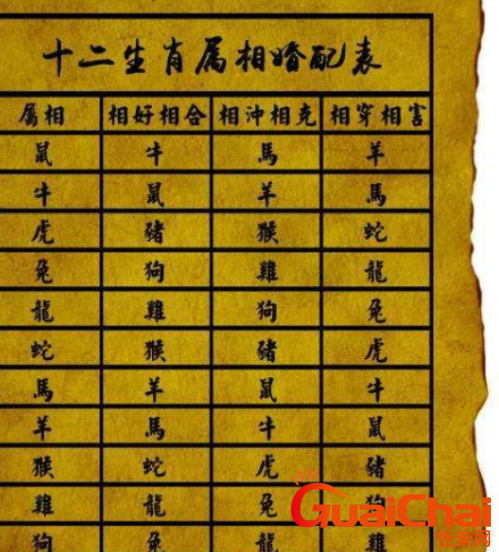 十二生肖属相婚配表
属相 相好相合 相沖相克 相穿相害
鼠 牛 馬 羊
牛 鼠 羊 馬
虎 豬 猴 蛇
兔 狗 雞 龍
龍 雞 狗 兔
蛇 猴 豬 虎
馬 羊 鼠 牛
羊 馬 牛 鼠
猴 蛇 虎 豬
雞 龍 兔 狗
狗 兔 龍 雞
GuaiChai